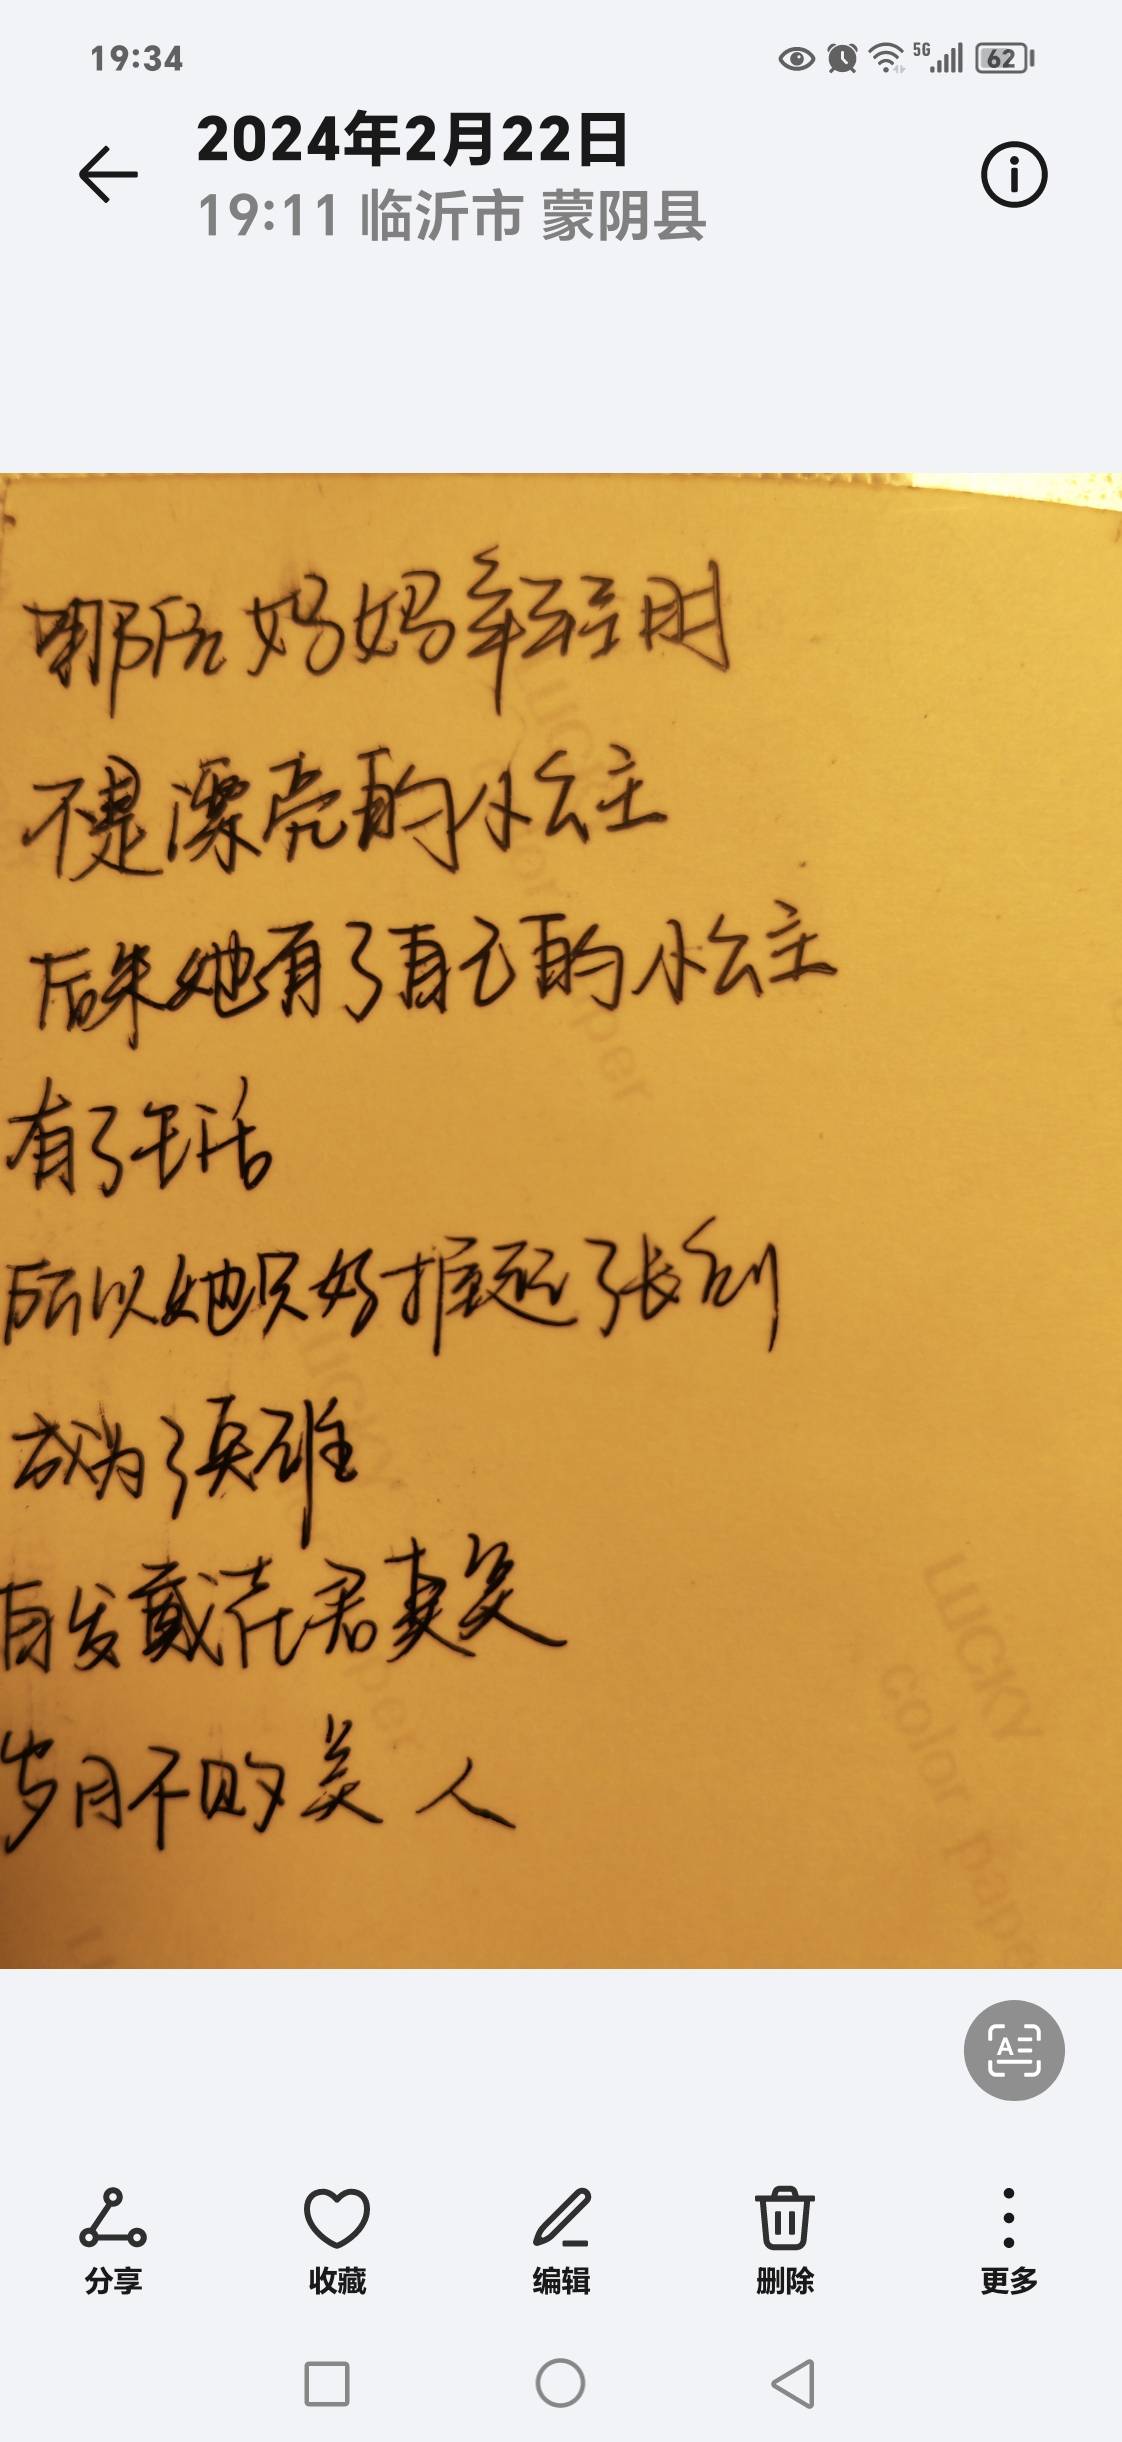 19:34
5G
62
2024年2月22日
19:11 临沂市 蒙阴县
哪位妈妈年轻时
不是漂亮的小公主
后来她有了自己的小公主
有了生活
所以她只好拒绝了张
成为了英雄
白发戴花君莫笑
岁月不败美人
LUCKY
color paper
分享
收藏
编辑
删除
更多